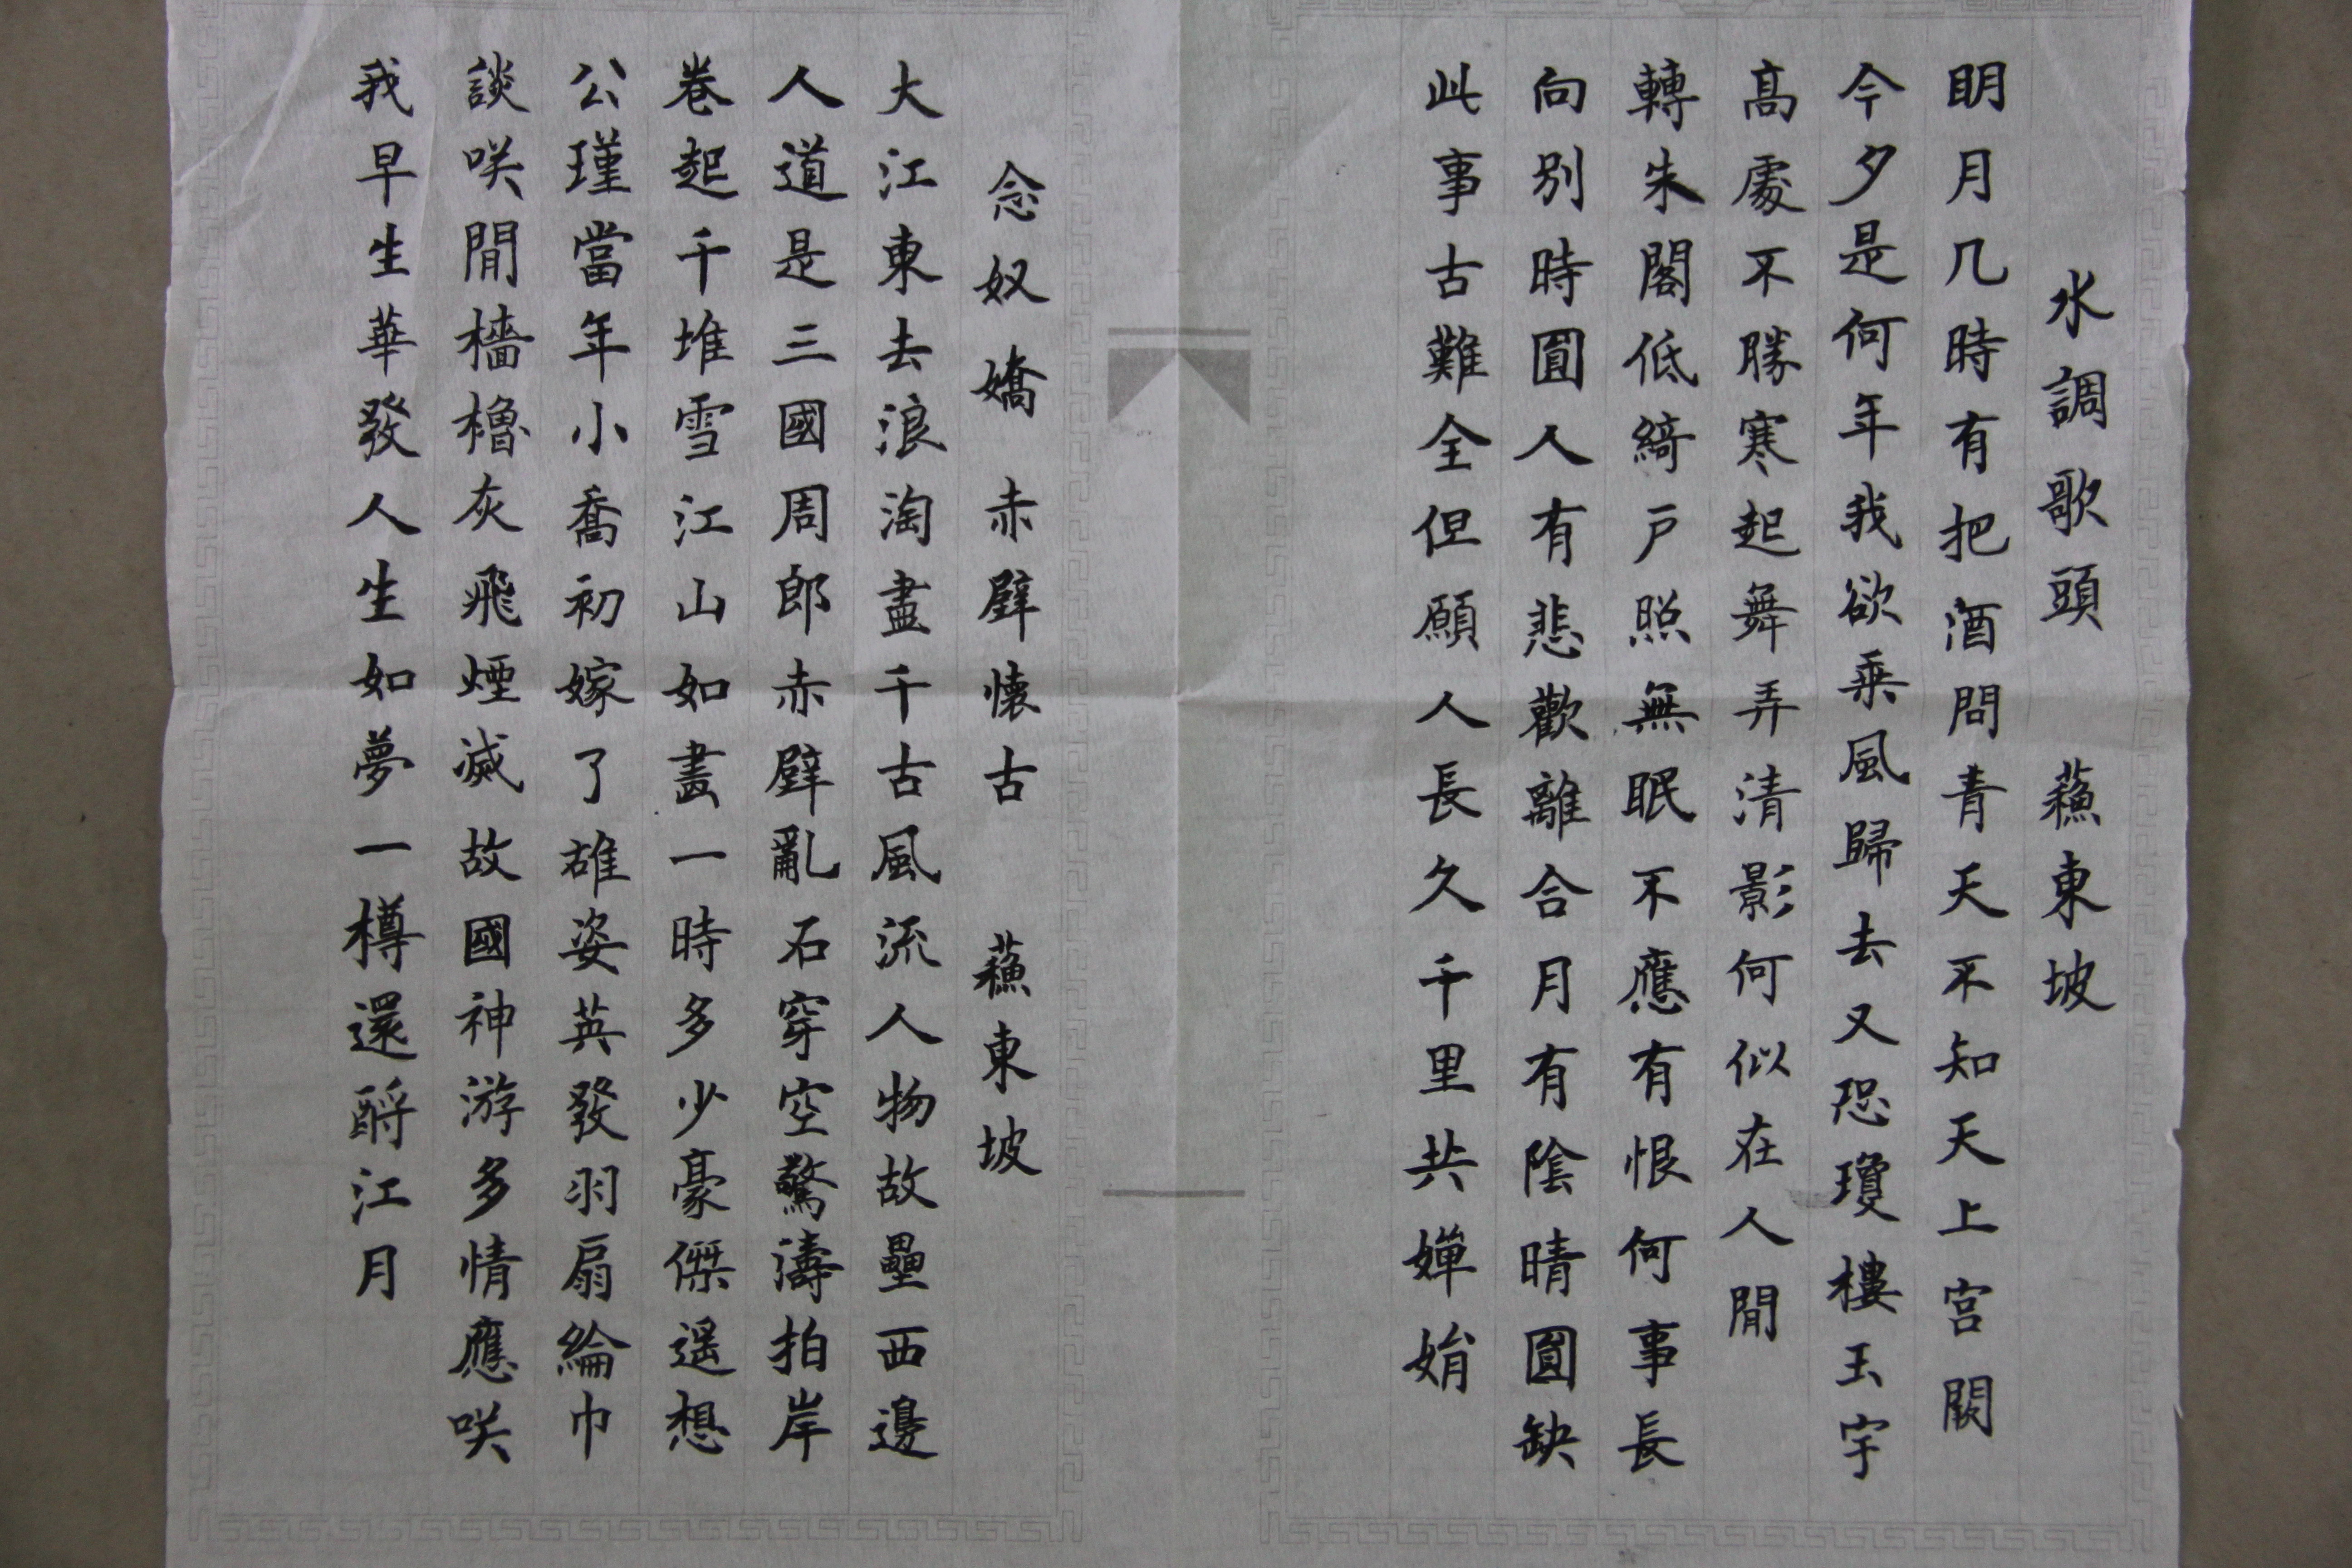 水調歌頭 蘓東坡
明月几時有把酒問青天不知天上宫闕
今夕是何年我欲乗風歸去又恐瓊樓玉宇
髙處不勝寒起舞弄清影何似在人間
轉朱閣低綺戶照無眠不應有恨何事長
向別時圓人有悲歡離合月有陰晴圓缺
此事古難全但願人長久千里共嬋娟
念奴嬌 赤壁懷古 蘓東坡
大江東去浪淘盡千古風流人物故壘西邊
人道是三國周郎赤壁亂石穿空驚濤拍岸
卷起千堆雪江山如畫一時多少豪傑遥想
公瑾當年小喬初嫁了雄姿英發羽扇綸巾
談咲間檣櫓灰飛煙滅故國神游多情應咲
我早生華發人生如夢一樽還酹江月